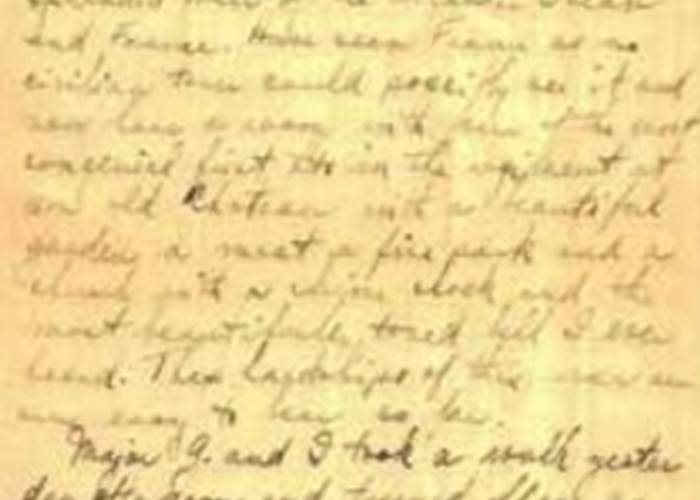 and France. Have seen France as no
civilian tour could possibly see it and
now have a room with one of the most
first Lts in the regiment at
an old Chateau with a beautiful
garden a moat a fine park and a
church with a chime clock and the
most beautifully toned bell I ever
heard. The hardships of this war are
very easy to bear so far.
Major G. and I took a walk yester
day afternoon and